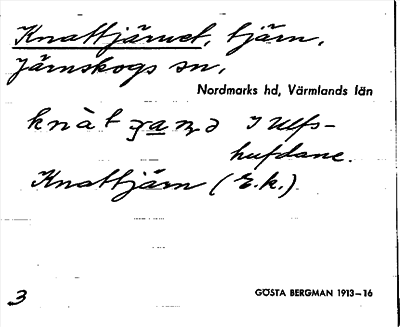 Knattjärnet, tjärn,
Järnskogs sn,
Nordmarks hd, Värmlands län
knàt I Ulfs-
hufdane.
Knattjärn (E.k.).
3
GÖSTA BERGMAN 1913–16